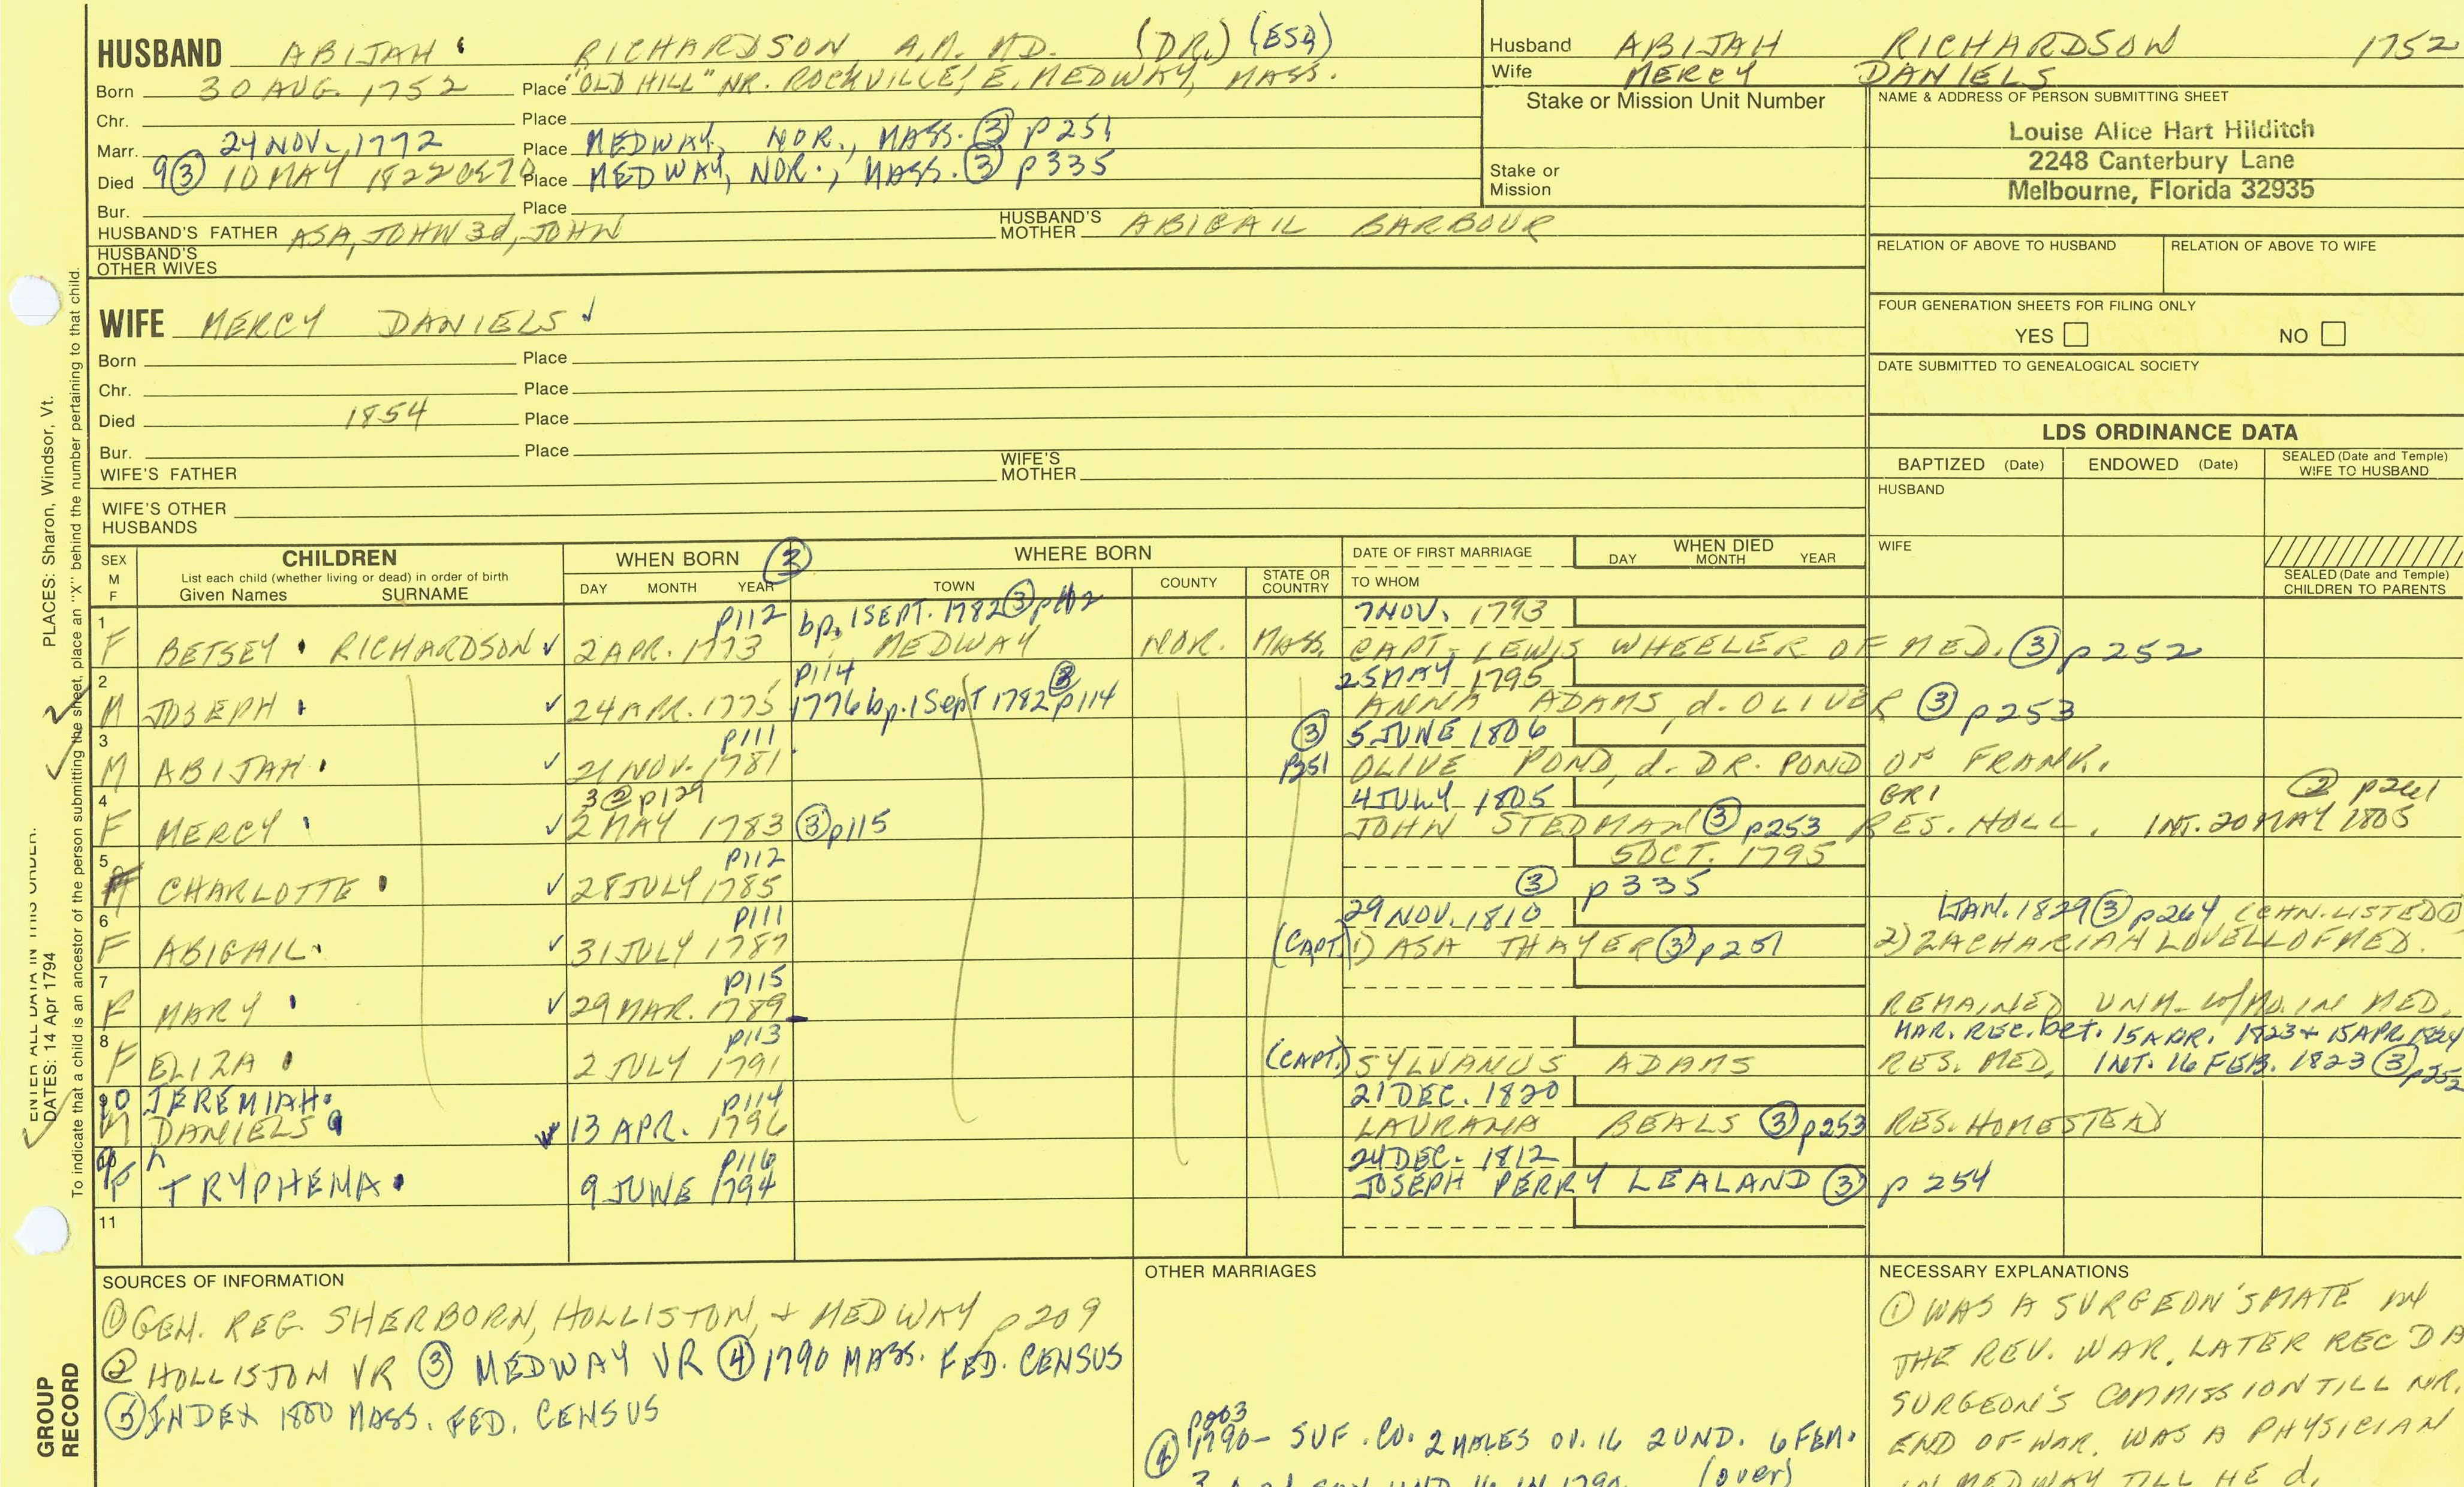 HUSBAND ABIJAH RICHARDSON A.M. MD. (DR.) (ESQ)
Born 30 AUG. 1752 Place "OLD HILL" NR. ROCKVILLE, E. MEDWAY, MASS.
Chr. Place
Marr. 24 NOV. 1772 Place MEDWAY, NOR., MASS. ③ p251
Died 9③ 10 MAY 1822 Place MEDWAY, NOR., MASS. ③ p335
Bur. Place
HUSBAND'S FATHER ASA, JOHN 3d, JOHN HUSBAND'S MOTHER ABIGAIL BARBOUR
HUSBAND'S OTHER WIVES
Husband ABIJAH RICHARDSON 1752
Wife MERCY DANIELS
Stake or Mission Unit Number
Stake or Mission
NAME & ADDRESS OF PERSON SUBMITTING SHEET
Louise Alice Hart Hilditch
2248 Canterbury Lane
Melbourne, Florida 32935
RELATION OF ABOVE TO HUSBAND RELATION OF ABOVE TO WIFE
FOUR GENERATION SHEETS FOR FILING ONLY
YES NO
DATE SUBMITTED TO GENEALOGICAL SOCIETY
WIFE MERCY DANIELS ✓
Born Place
Chr. Place
Died 1854 Place
Bur. Place
WIFE'S FATHER WIFE'S MOTHER
WIFE'S OTHER HUSBANDS
LDS ORDINANCE DATA
BAPTIZED (Date) ENDOWED (Date) SEALED (Date and Temple) WIFE TO HUSBAND
HUSBAND
WIFE
SEALED (Date and Temple) CHILDREN TO PARENTS
SEX M F
CHILDREN
List each child (whether living or dead) in order of birth
Given Names SURNAME
WHEN BORN ③
DAY MONTH YEAR
WHERE BORN
TOWN COUNTY STATE OR COUNTRY
DATE OF FIRST MARRIAGE
TO WHOM
WHEN DIED
DAY MONTH YEAR
1 p112 bp. 1 SEPT. 1782 ③ 7 NOV. 1793
F BETSEY RICHARDSON ✓ 2 APR. 1773 MEDWAY NOR. MASS. CAPT. LEWIS WHEELER OF MED. ③ p252
2 p114 ③ 25 MAY 1795
M JOSEPH ✓ 24 APR. 1775 1776 bp. 1 Sept 1782 p114 ANNA ADAMS, d. OLIVER ③ p253
3 p111 ③ 5 JUNE 1806
M ABIJAH ✓ 21 NOV. 1781 p251 OLIVE POND, d. DR. POND OF FRANK.
4 3 ② p129 4 JULY 1805 GRI ② p261
F MERCY ✓ 2 MAY 1783 ③ p115 JOHN STEDMAN ③ p253 RES. HOLL. INT. 20 MAY 1805
5 p112 5 OCT. 1795
F CHARLOTTE ✓ 28 JULY 1785 ③ p335
6 p111 29 NOV. 1810 1 JAN. 1829 ③ p264 (CHN. LISTED ①
F ABIGAIL ✓ 31 JULY 1787 (CAPT.) 1) ASA THAYER ③ p251 2) ZACHARIAH LOVELL OF MED.
7 p115
F MARY ✓ 29 MAR. 1789 REMAINED UNM. IN MED.
8 p113 MAR. REC. bet. 15 APR. 1823 + 15 APR. 1824
F ELIZA 2 JULY 1791 (CAPT.) SYLVANUS ADAMS RES. MED. INT. 16 FEB. 1823 ③ p252
10 JEREMIAH p114 21 DEC. 1820
M DANIELS ✓ 13 APR. 1796 LAURANA BEALS ③ p253 RES. HOMESTEAD
9 p116 24 DEC. 1812
F TRYPHENA 9 JUNE 1794 JOSEPH PERRY LEALAND ③ p 254
11
SOURCES OF INFORMATION
① GEN. REG. SHERBORN, HOLLISTON, + MEDWAY p209
② HOLLISTON VR ③ MEDWAY VR ④ 1790 MASS. FED. CENSUS
⑤ INDEX 1800 MASS. FED. CENSUS
OTHER MARRIAGES
④ 1790 - SUF. CO. 2 MALES OV. 16 2 UND. 6 FEM.
(over)
NECESSARY EXPLANATIONS
① WAS A SURGEON'S MATE IN
THE REV. WAR. LATER REC'D A
SURGEON'S COMMISSION TILL NR.
END OF WAR. WAS A PHYSICIAN
IN MEDWAY TILL HE d.
PLACES: Sharon, Windsor, Vt.
ENTER ALL DATA IN THIS ORDER:
DATES: 14 Apr 1794
To indicate that a child is an ancestor of the person submitting the sheet, place an "X" behind the number pertaining to that child.
GROUP RECORD